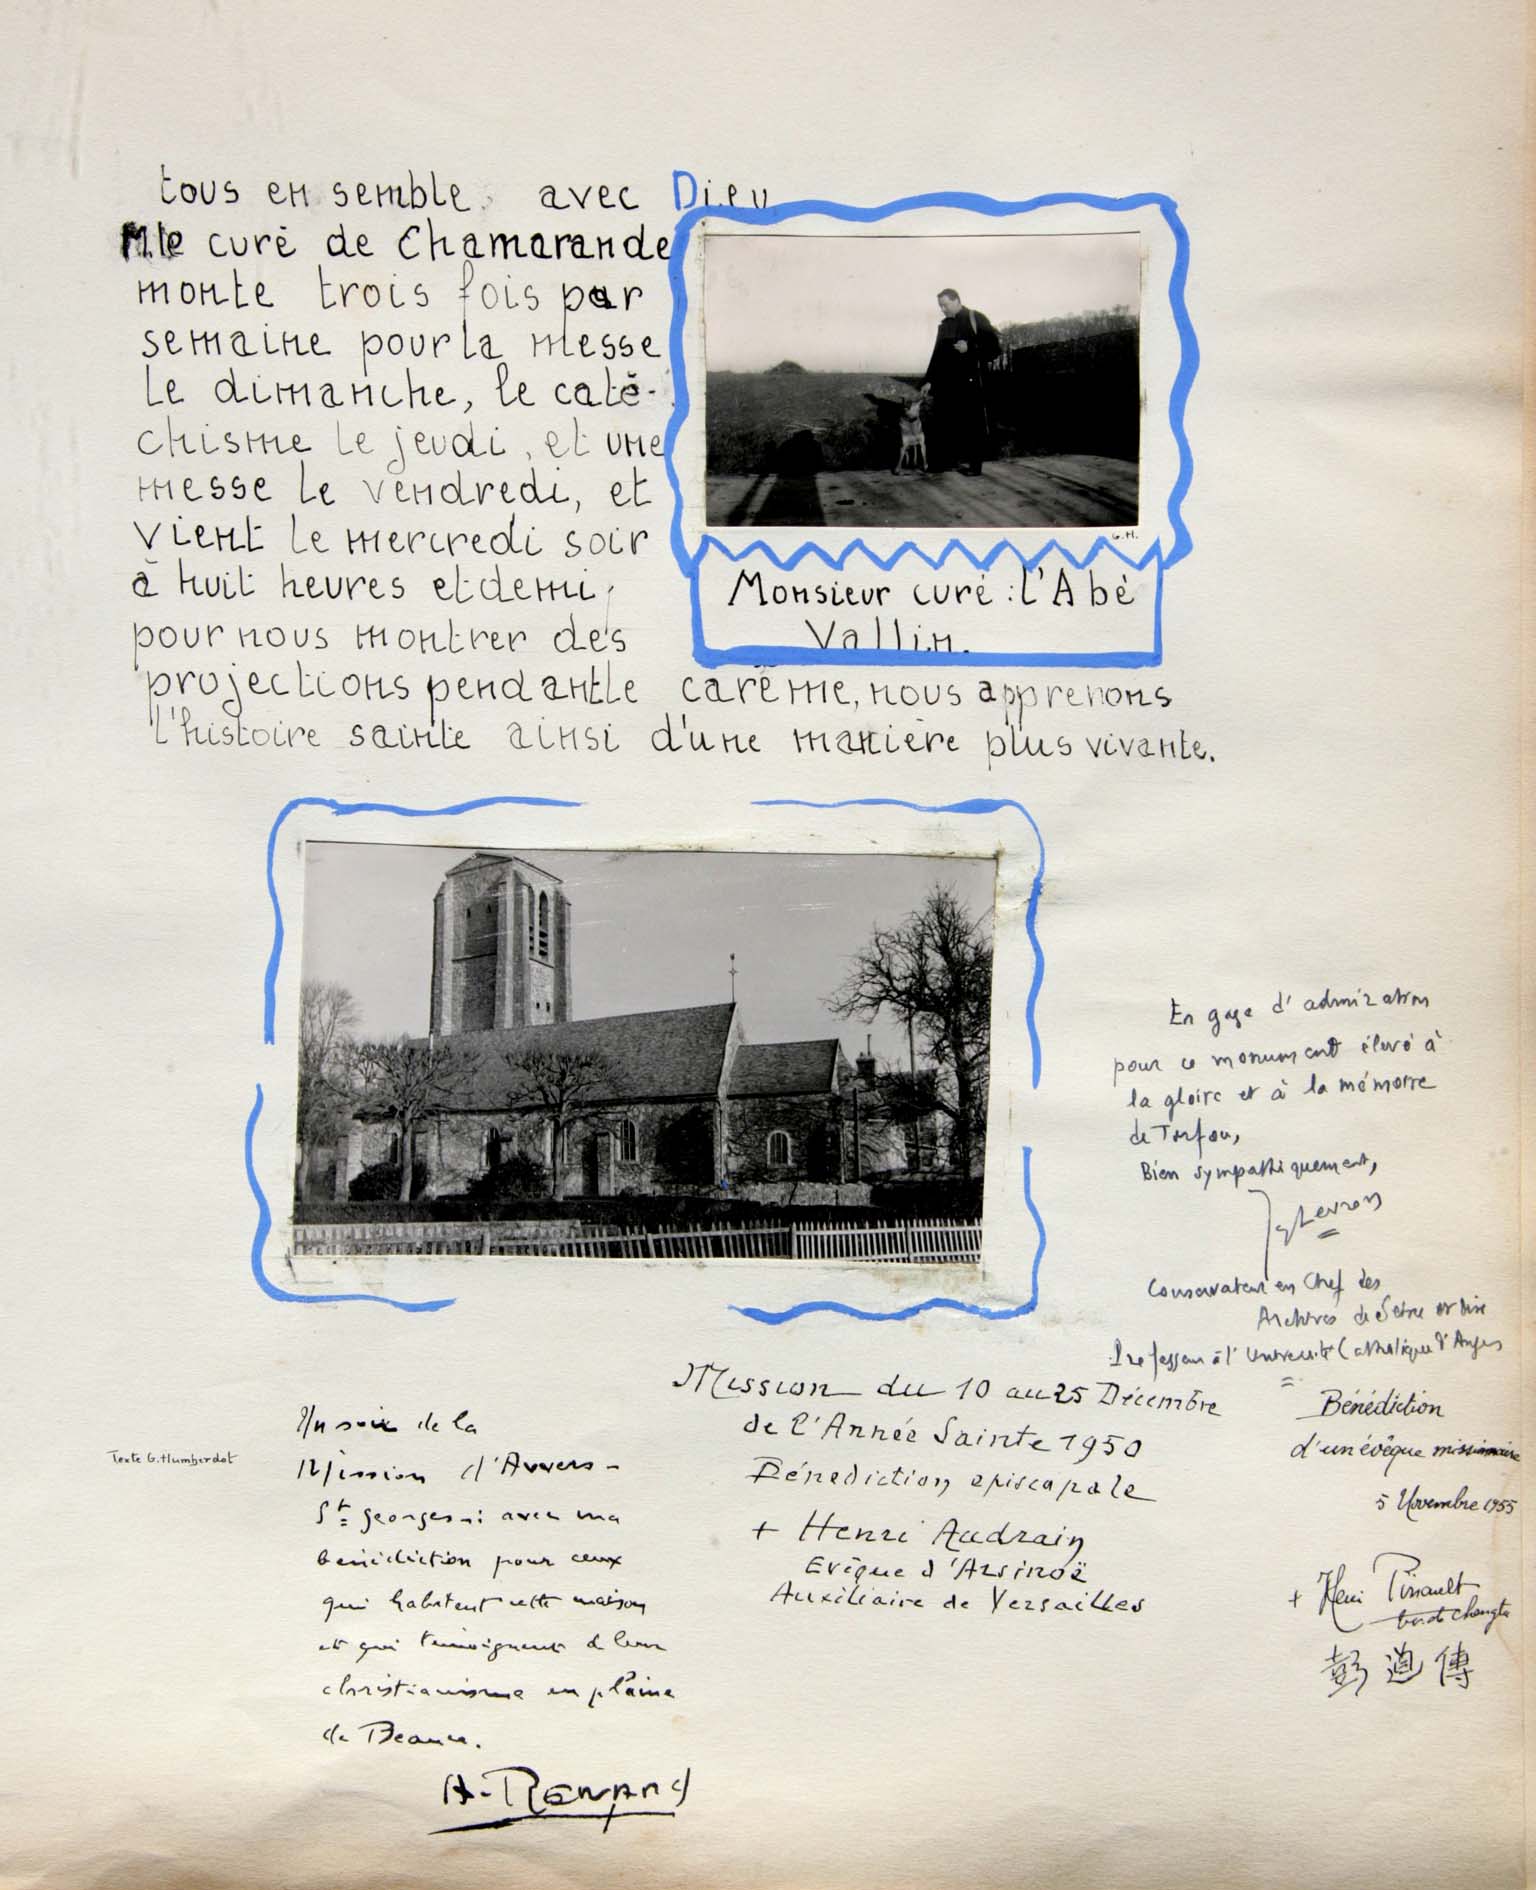 tous en semble. avec Dieu
M.le curé de Chamarande
monte trois fois par
semaine pour la messe
le dimanche, le caté-
chisme le jeudi, et une
messe le vendredi, et
vient le mercredi soir
à huit heures et demi,
pour nous montrer des
projections pendant le carême, nous apprenons
l'histoire sainte ainsi d'une manière plus vivante.
G.H.
Monsieur curé : l'Abé
Vallin.
En gage d'admiration
pour ce monument élevé à
la gloire et à la mémoire
de Torfou,
Bien sympathiquement,
J Levron
Conservateur en Chef des
Archives de Seine et Oise
Professeur à l'Université Catholique d'Angers
Texte G. Humberdot
Un soir de la
Mission d'Auvers-
St georges : avec ma
bénédiction pour ceux
qui habitent cette maison
et qui témoignent de leur
christianisme en plaine
de Beauce.
A. Renard
Mission du 10 au 25 Décembre
de l'Année Sainte 1950
Bénédiction épiscopale
+ Henri Audrain
Evêque d'Arsinoë
Auxiliaire de Versailles
Bénédiction
d'un évêque missionnaire
5 Novembre 1955
+ Henri Pinault
év. de Chengtu
彭道傳